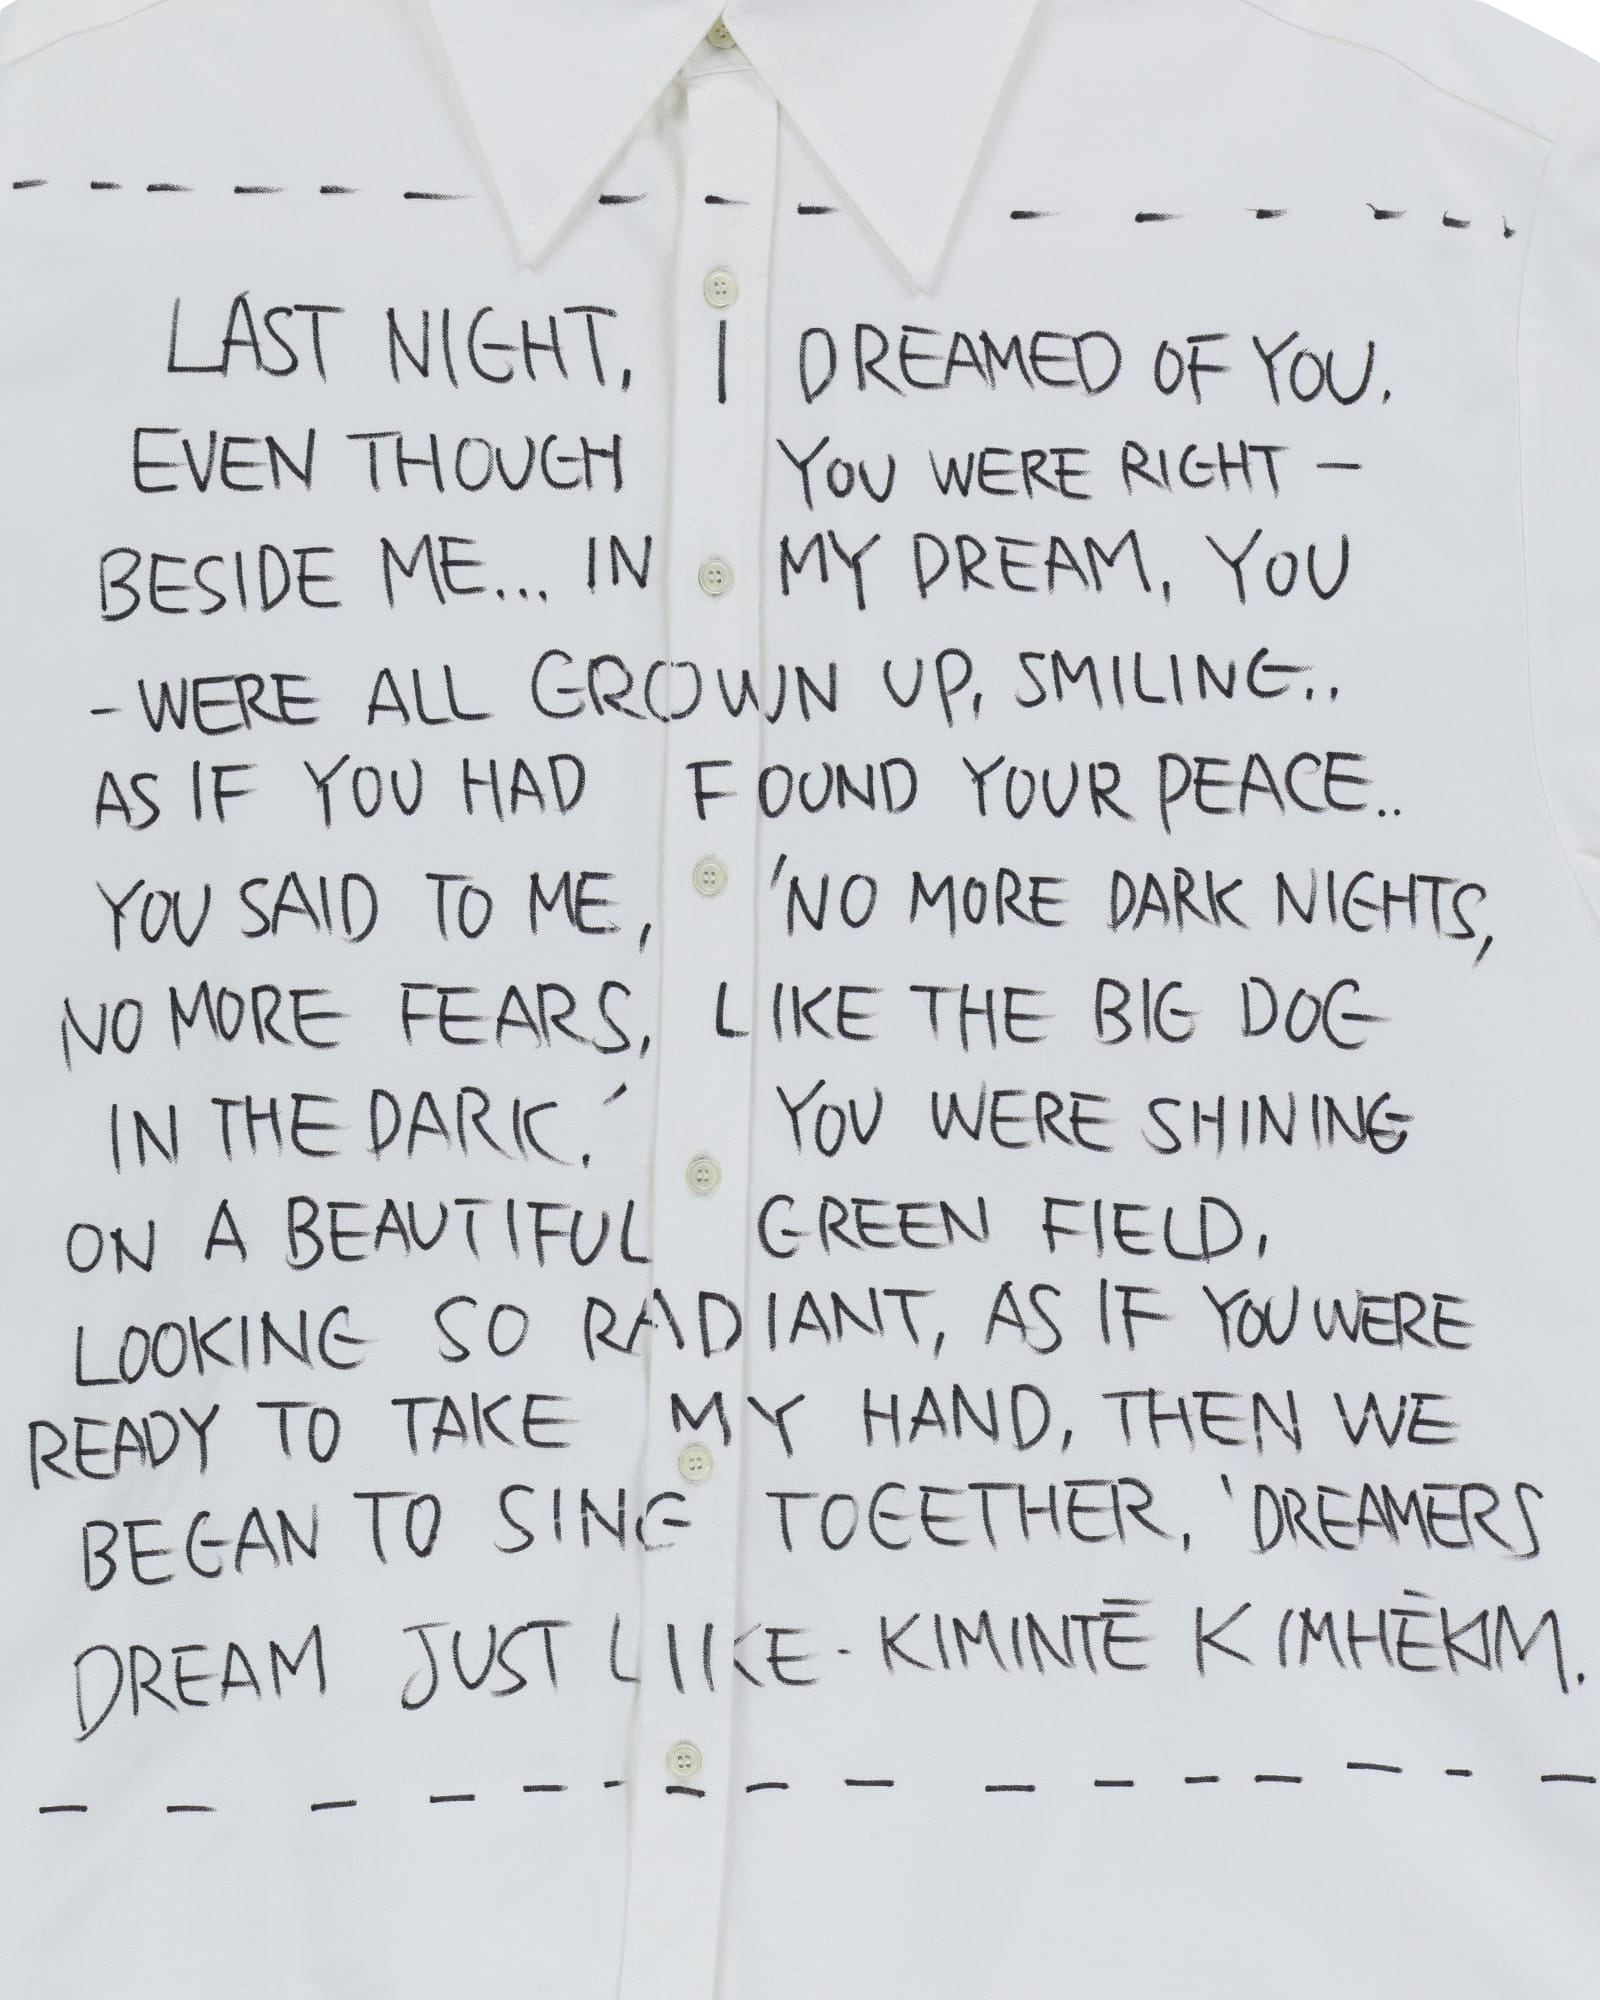 LAST NIGHT, I DREAMED OF YOU.
EVEN THOUGH YOU WERE RIGHT –
BESIDE ME... IN MY DREAM, YOU
- WERE ALL GROWN UP, SMILING..
AS IF YOU HAD FOUND YOUR PEACE..
YOU SAID TO ME, 'NO MORE DARK NIGHTS,
NO MORE FEARS, LIKE THE BIG DOG
IN THE DARK.' YOU WERE SHINING
ON A BEAUTIFUL GREEN FIELD,
LOOKING SO RADIANT, AS IF YOU WERE
READY TO TAKE MY HAND, THEN WE
BEGAN TO SING TOGETHER, 'DREAMERS
DREAM JUST LIKE - KIMINTĒ KIMHĒKIM.